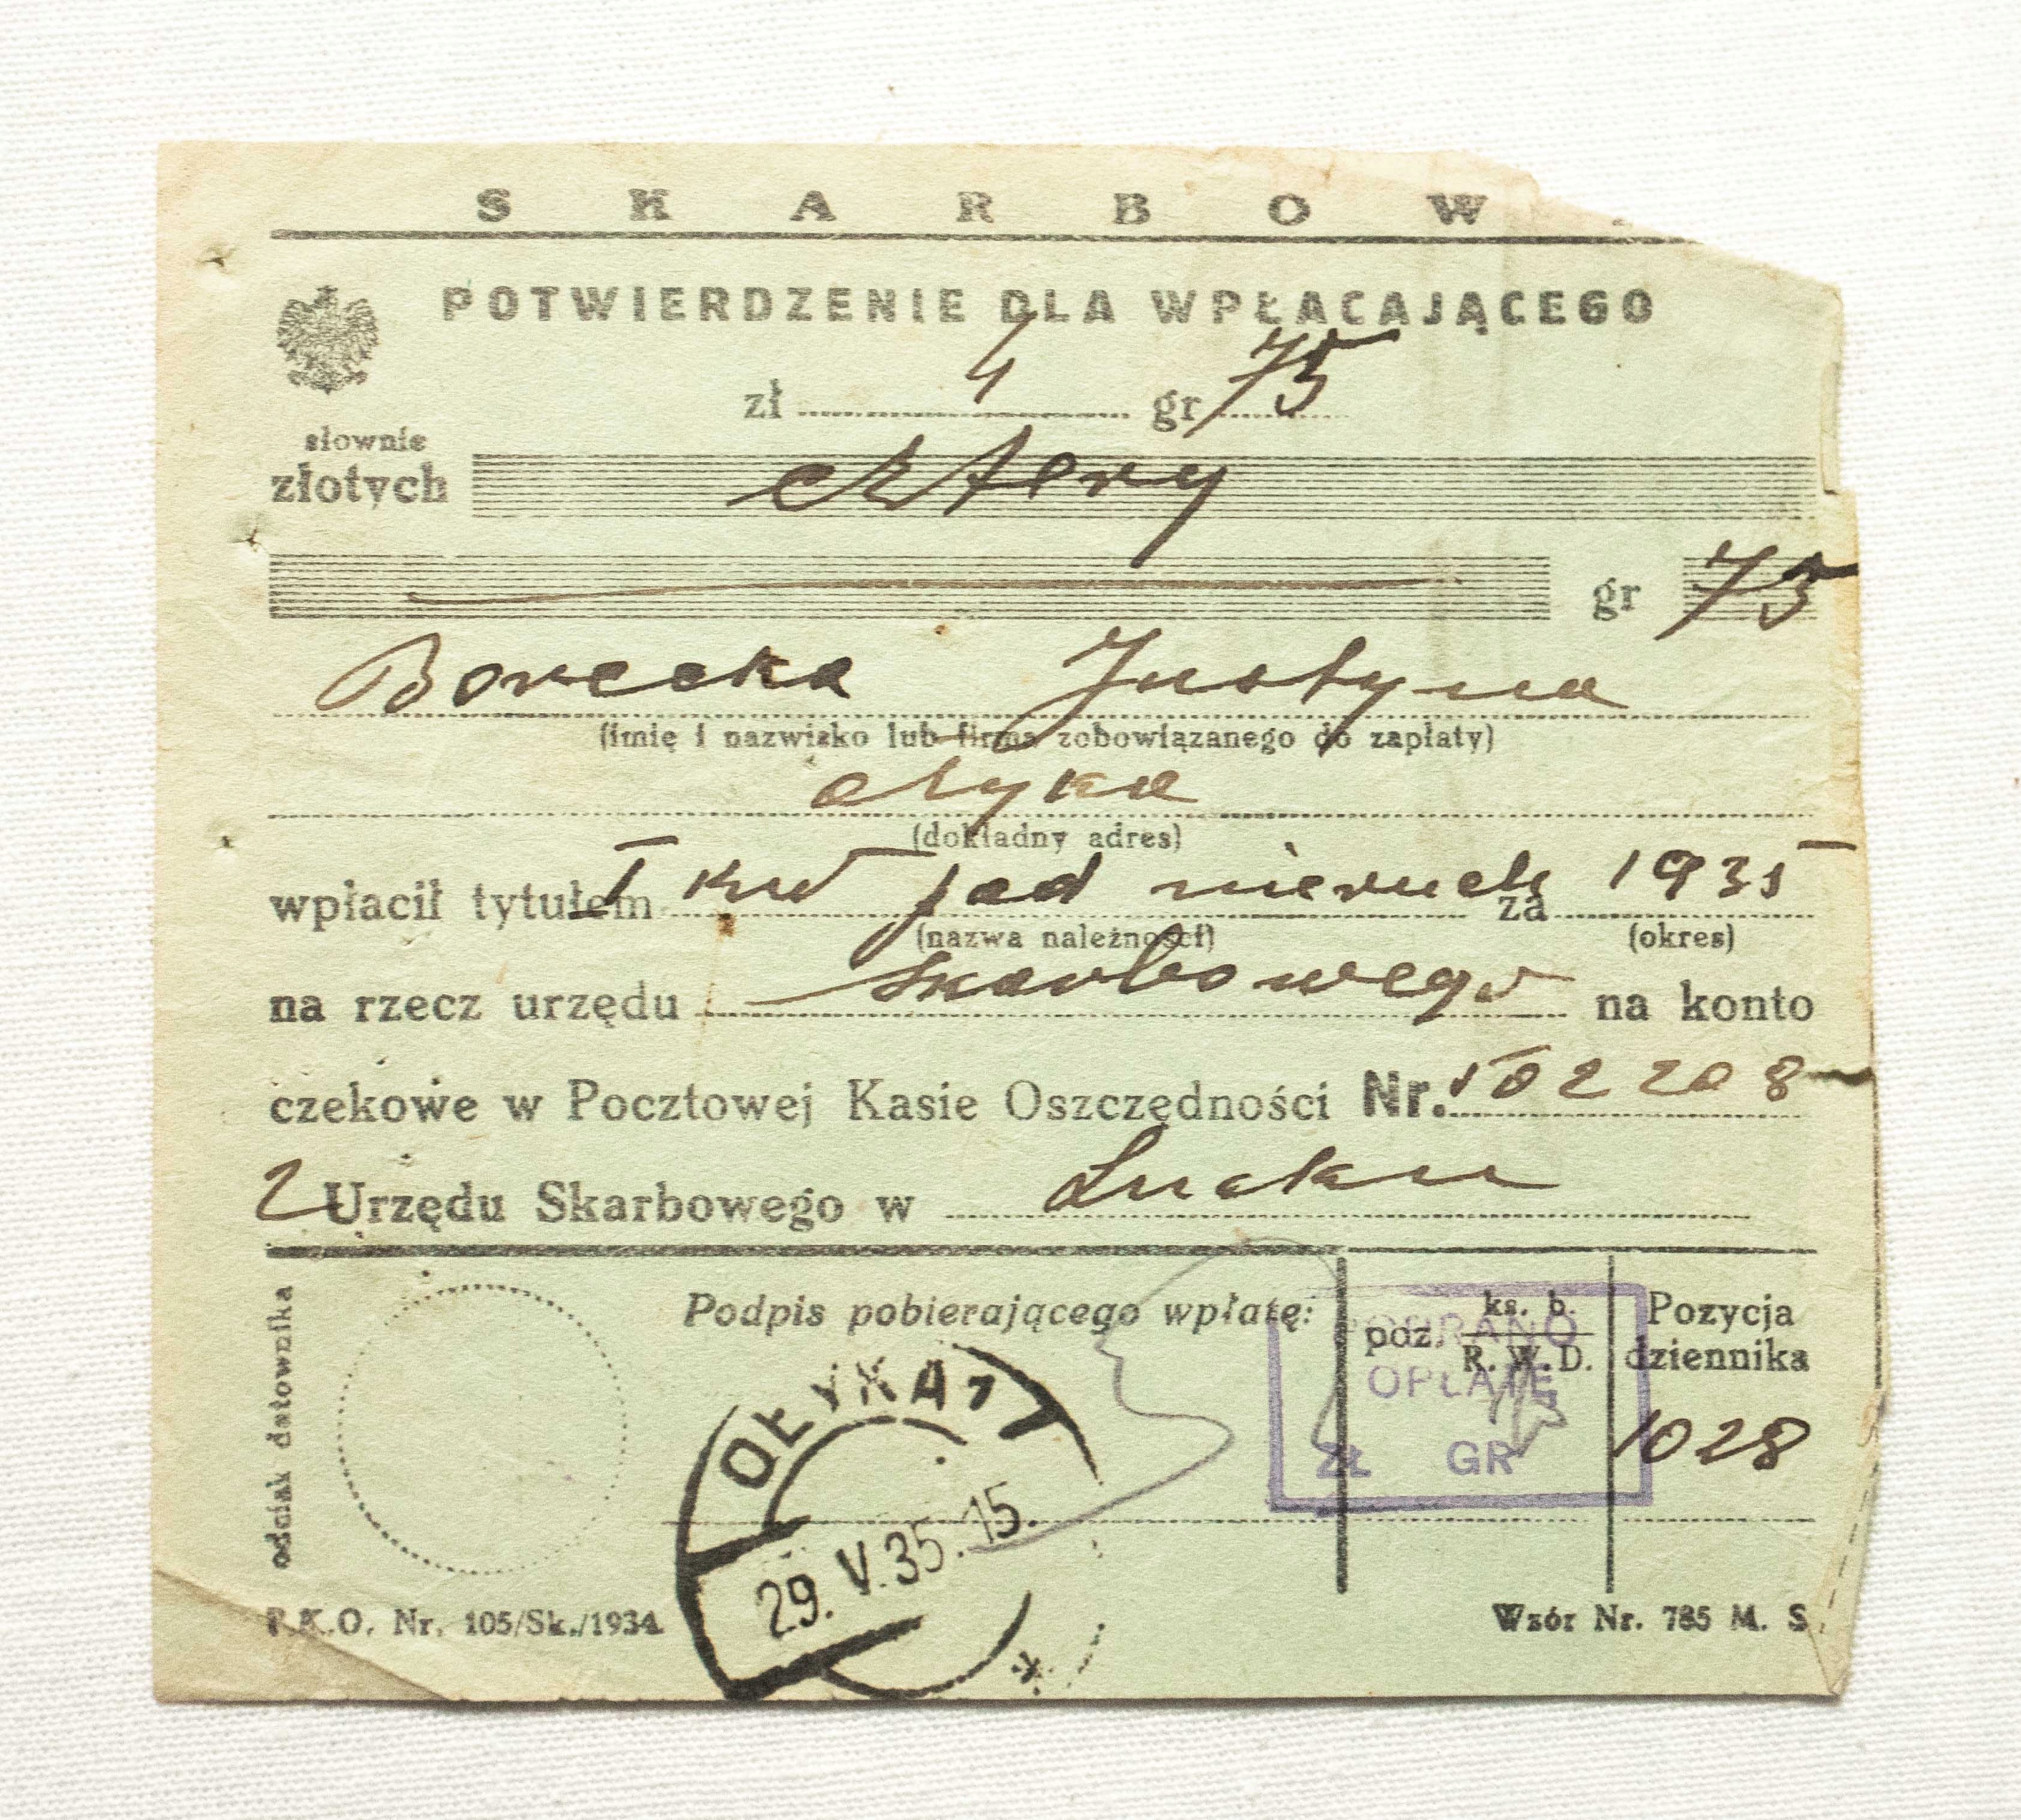 S K A R B O W
POTWIERDZENIE DLA WPŁACAJĄCEGO
zł 4 gr 75
słownie
złotych cztery
gr 75
Borecka Justyna
(imię i nazwisko lub firma zobowiązanego do zapłaty)
Ołyka
(dokładny adres)
wpłacił tytułem I kw pod nieruch za 1935
(nazwa należności) (okres)
na rzecz urzędu Skarbowego na konto
czekowe w Pocztowej Kasie Oszczędności Nr. 502208
2 Urzędu Skarbowego w Łucku
odcisk datownika
Podpis pobierającego wpłatę:
poz. ks. b.
R. W. D.
Pozycja
dziennika
1028
POBRANO
OPŁATĘ
ZŁ GR
OŁYKA 1
29. V. 35. 15.
*
P.K.O. Nr. 105/Sk./1934
Wzór Nr. 785 M. S